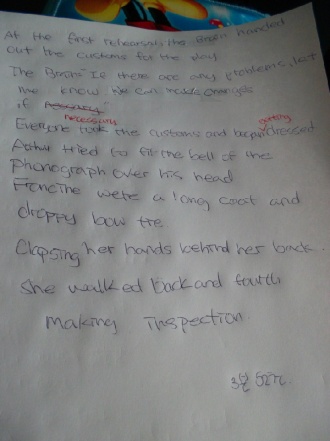 At the first rehearsal the Brain handed
out the customs for the play.
The Brain If there are any problems, let
me know We can made changes
if necessary
necessary
getting
Everyone took the customs and began dressed
Arthur tried to fit the bell of the
Phonograph over his head
Francine were a long coat and
droppy bow tie
Clapsing her hands behind her back.
She walked back and fourth
Making inspection.